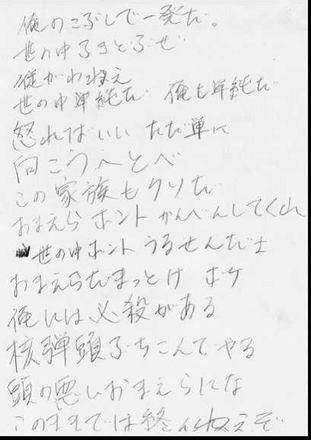 俺のこぶしで一発だ。
世の中るきとぶぜ
従がわねえ
世の中単純だ 俺も単純だ
怒ればいい ただ単に
向こうへとべ
この家族もクソだ
おまえら ホント かんべんしてくれ
世の中ホント うるせんだよ
おまえらだまっとけ ボケ
俺には必殺がある
核弾頭ぶちこんでやる
頭の悪いおまえらにな
このままでは終んねえぞ